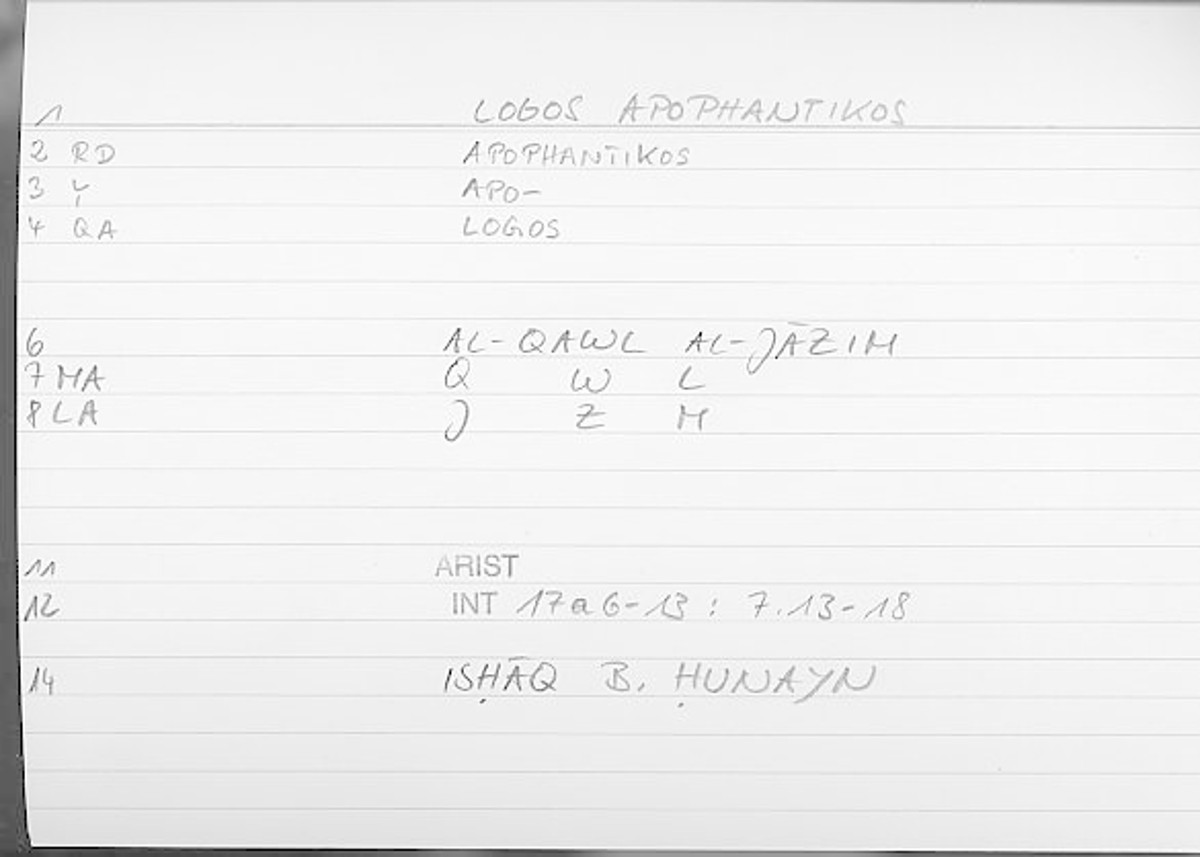 1 LOGOS APOPHANTIKOS
2 RD APOPHANTIKOS
3 Y APO-
4 QA LOGOS
6 AL-QAWL AL-JĀZIM
7 MA Q W L
8 LA J Z M
11 ARIST
12 INT 17a6-13 : 7.13-18
14 ISḤĀQ B. ḤUNAYN